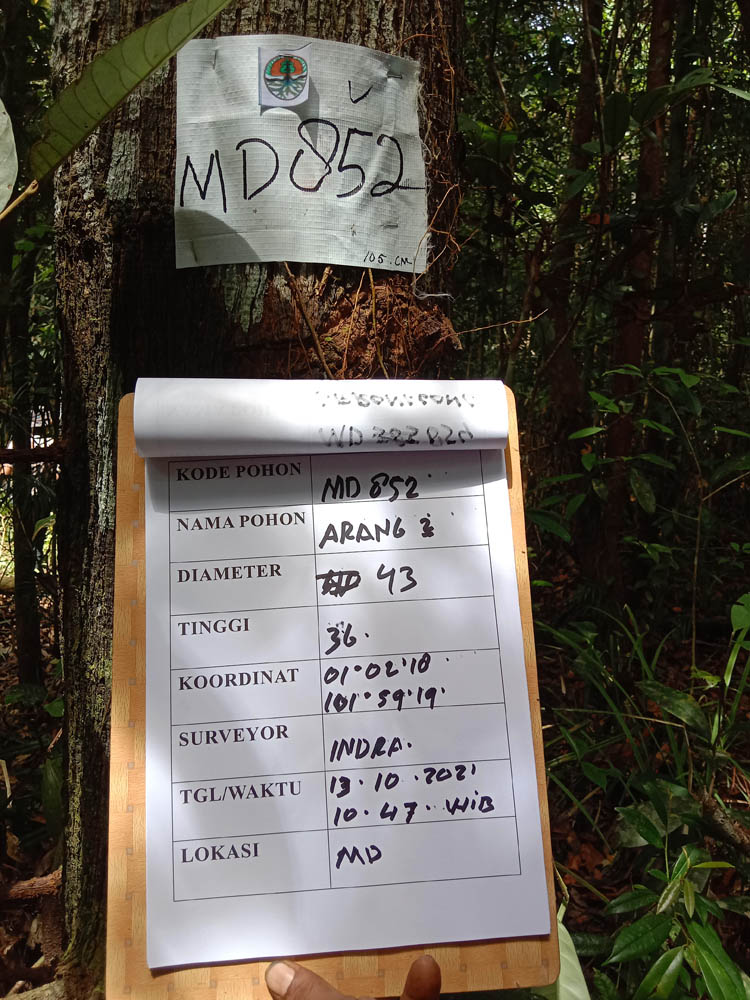 V
MD852
105.CM
KODE POHON MD 852
NAMA POHON ARANG
DIAMETER 43
TINGGI 36.
KOORDINAT 01°02'18
101°59'19'
SURVEYOR INDRA.
TGL/WAKTU 13.10.2021
10.47.WIB
LOKASI MD